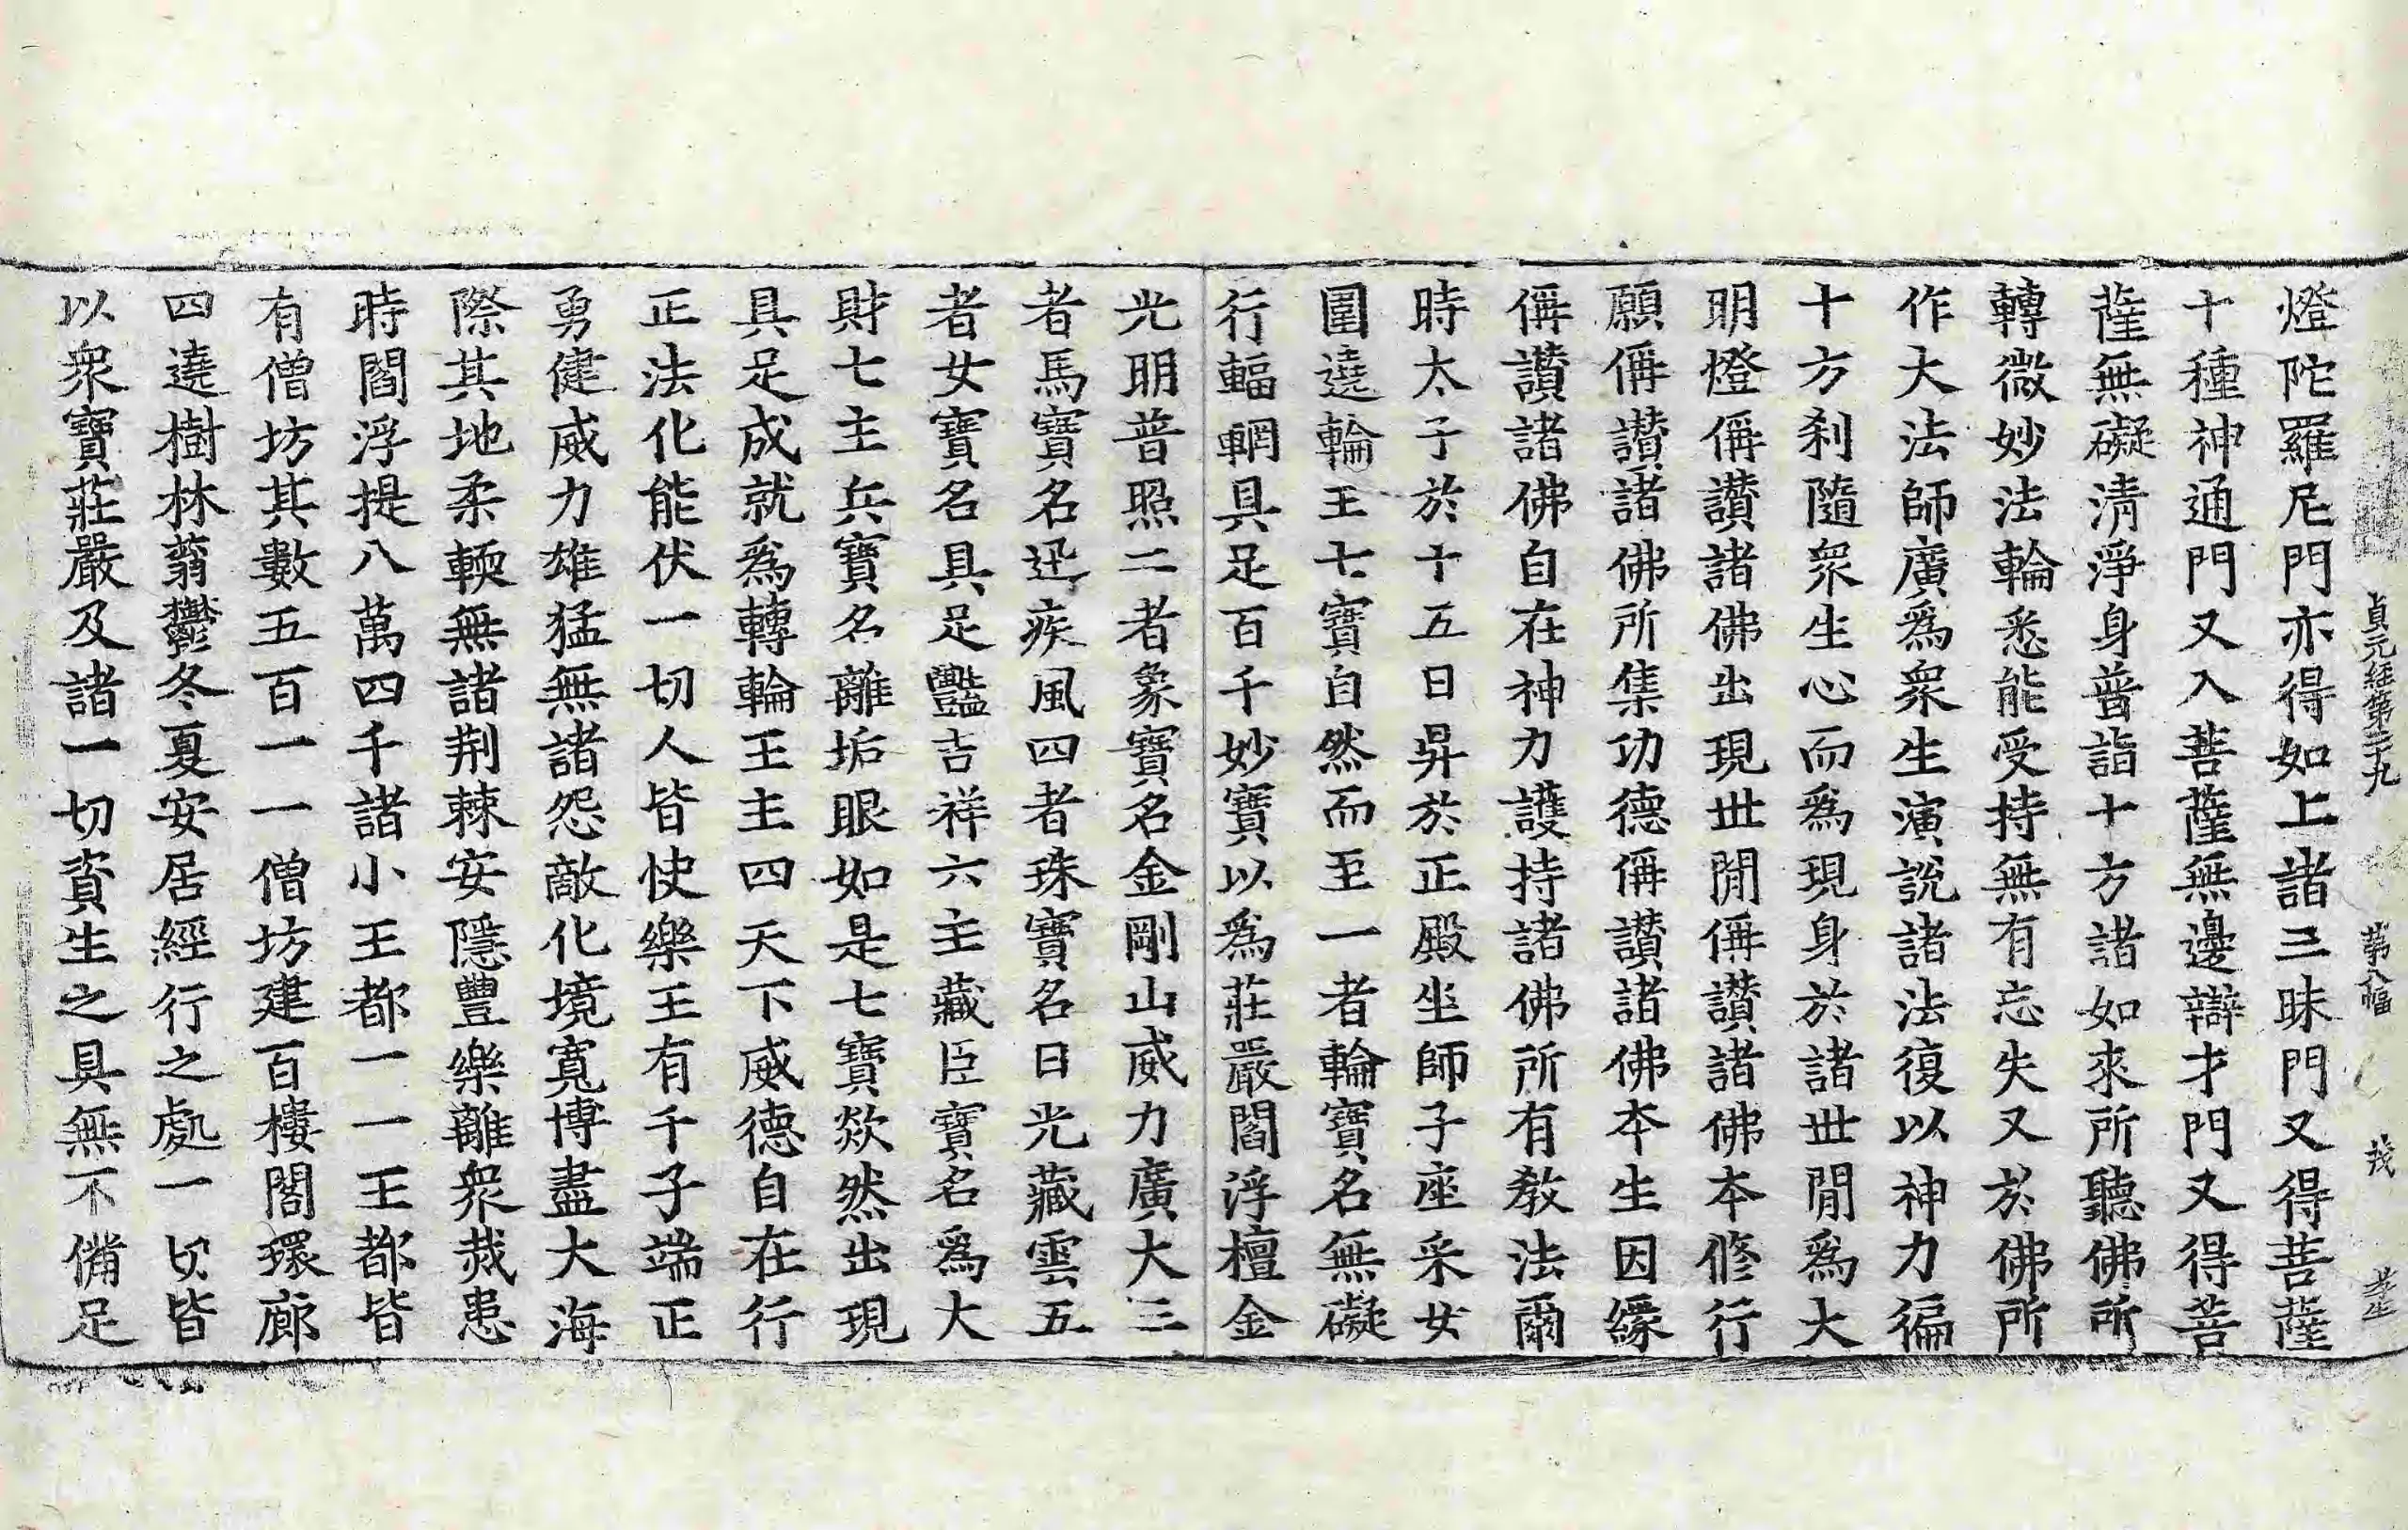 貞元經第二十九 第八幅 茂 步生
燈陀羅尼門亦得如上諸三昧門又得菩薩
十種神通門又入菩薩無邊辯才門又得菩
薩無礙淸淨身普詣十方諸如來所聽佛所
轉微妙法輪悉能受持無有忘失又於佛所
作大法師廣爲衆生演說諸法復以神力徧
十方刹隨衆生心而爲現身於諸世閒爲大
明燈偁讃諸佛出現世閒偁讃諸佛本修行
願偁讃諸佛所集功德偁讃諸佛本生因緣
偁讃諸佛自在神力護持諸佛所有敎法爾
時太子於十五日昇於正殿坐師子座采女
圍遶輪王七寶自然而至一者輪寶名無礙
行輻輞具足百千妙寶以爲莊嚴閻浮檀金
光明普照二者象寶名金剛山威力廣大三
者馬寶名迅疾風四者珠寶名日光藏雲五
者女寶名具足豔吉祥六主藏臣寶名爲大
財七主兵寶名離垢眼如是七寶欻然出現
具足成就爲轉輪王主四天下威德自在行
正法化能伏一切人皆快樂王有千子端正
勇健威力雄猛無諸怨敵化境寬博盡大海
際其地柔輭無諸荆棘安隱豐樂離衆烖患
時閻浮提八萬四千諸小王都一一王都皆
有僧坊其數五百一一僧坊建百樓閣環廊
四遶樹林蓊鬱冬夏安居經行之處一切皆
以衆寶莊嚴及諸一切資生之具無不備足